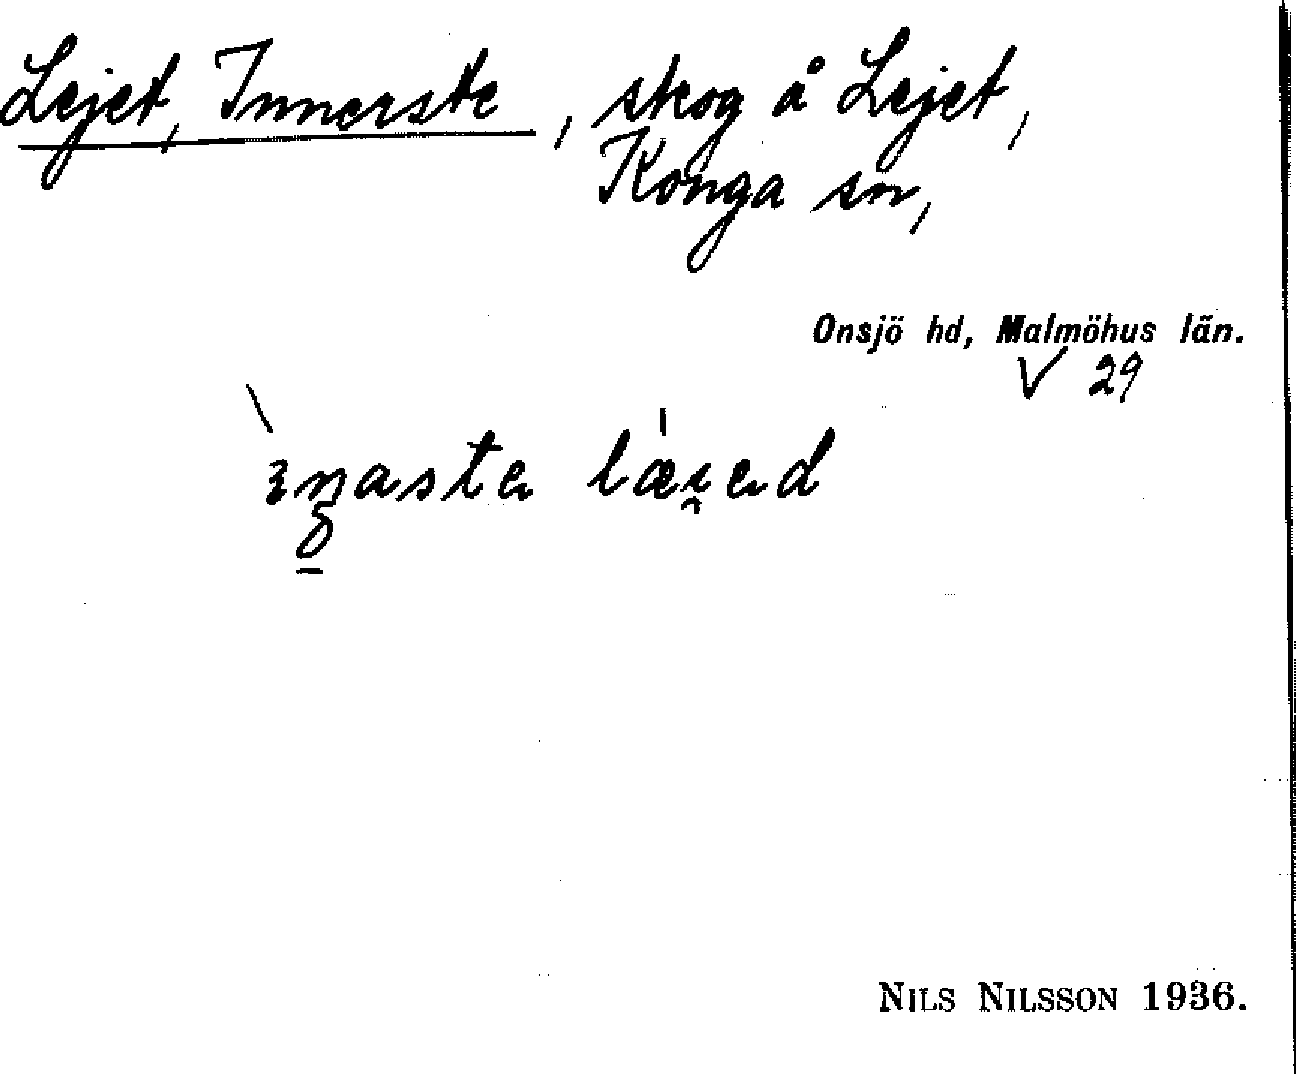 Lejet, Innerste, skog å Lejet,
Konga sn,
Onsjö hd, Malmöhus län.
V 29
NILS NILSSON 1936.